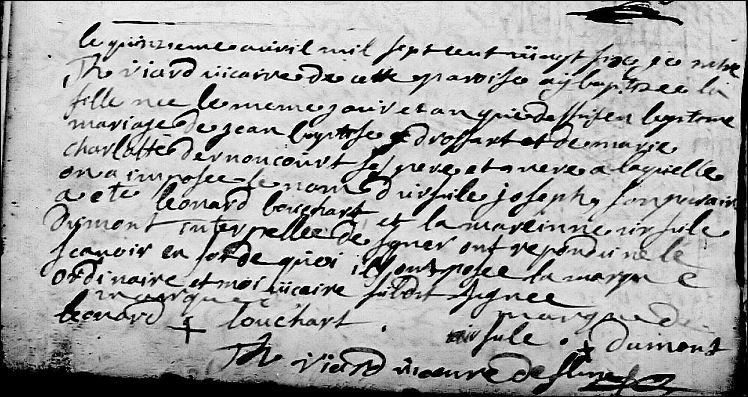 le quinzieme auvril mil sept cent vingt je
Th viard vicaire de cette paroisse ay baptisee la
fille nee le meme jour et an que dessus en leptime
mariage de jean baptise drossart et de marie
charlotte dernoncourt ses pere et mere a laquelle
on a imposee le nom d'ursule joseph, son parain
a ete leonard louchart et la mareinne ursule
Dumont interpellee de signer ont repondu ne le
scavoir en foi de quoi ils ont posee la marque
ordinaire et moi vicaire signee
marque marque de
leonard louchart. ursule . dumont
Th viard vicaire de